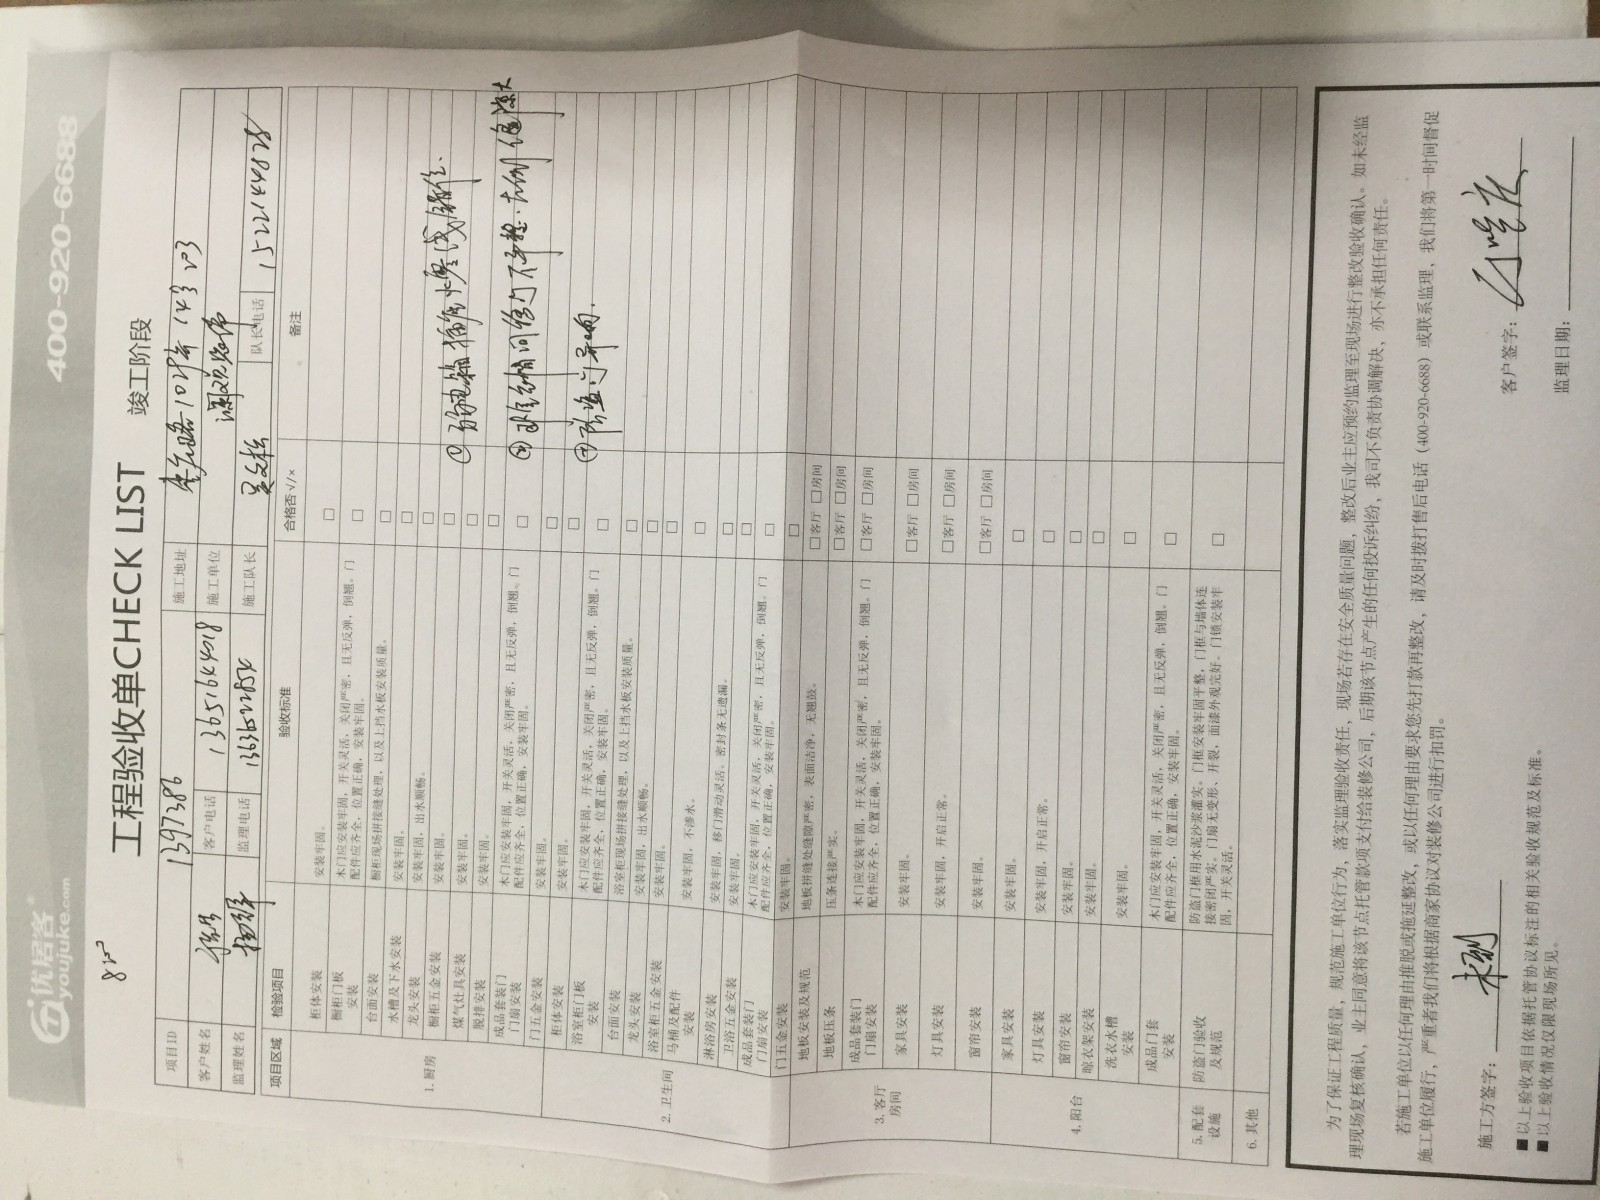 优居客
youjuke.com
400-920-6688
工程验收单CHECK LIST 竣工阶段
项目ID 1397386 施工地址
客户姓名 客户电话 13651644018 施工单位
监理姓名 监理电话 施工队长 队长电话 15221444828
项目区域 检验项目 验收标准 合格否 √/× 备注
1. 厨房
柜体安装 安装牢固。 □
橱柜门板安装 木门应安装牢固，开关灵活，关闭严密，且无反弹，倒翘。门配件应齐全，位置正确，安装牢固。 □
台面安装 橱柜现场拼接缝处理，以及上挡水板安装质量。 □
水槽及下水安装 安装牢固。 □
龙头安装 安装牢固，出水顺畅。 □
橱柜五金安装 安装牢固。 □
煤气灶具安装 安装牢固。 □
脱排安装 安装牢固。 □
成品套装门门扇安装 木门应安装牢固，开关灵活，关闭严密，且无反弹，倒翘。门配件应齐全，位置正确，安装牢固。 □
门五金安装 安装牢固。 □
2. 卫生间
柜体安装 安装牢固。 □
浴室柜门板安装 木门应安装牢固，开关灵活，关闭严密，且无反弹，倒翘。门配件应齐全，位置正确，安装牢固。 □
台面安装 浴室柜现场拼接缝处理，以及上挡水板安装质量。 □
龙头安装 安装牢固，出水顺畅。 □
浴室柜五金安装 安装牢固。 □
马桶及配件安装 安装牢固，不渗水。 □
淋浴房安装 安装牢固，移门滑动灵活。密封条无遗漏。 □
卫浴五金安装 安装牢固。 □
成品套装门门扇安装 木门应安装牢固，开关灵活，关闭严密，且无反弹，倒翘。门配件应齐全，位置正确，安装牢固。 □
门五金安装 安装牢固。 □
3. 客厅房间
地板安装及规范 地板拼缝处缝隙严密，表面洁净，无翘鼓。 □客厅 □房间
地板压条 压条连接严实。 □客厅 □房间
成品套装门门扇安装 木门应安装牢固，开关灵活，关闭严密，且无反弹，倒翘。门配件应齐全，位置正确，安装牢固。 □客厅 □房间
家具安装 安装牢固。 □客厅 □房间
灯具安装 安装牢固，开启正常。 □客厅 □房间
窗帘安装 安装牢固。 □客厅 □房间
4. 阳台
家具安装 安装牢固。 □
灯具安装 安装牢固，开启正常。 □
窗帘安装 安装牢固。 □
晾衣架安装 安装牢固。 □
洗衣水槽安装 安装牢固。 □
成品门套安装 木门应安装牢固，开关灵活，关闭严密，且无反弹，倒翘。门配件应齐全，位置正确，安装牢固。 □
5. 配套设施
防盗门验收及规范 防盗门框用水泥沙浆灌实。门框安装牢固平整，门框与墙体连接密闭严实。门扇无变形，开裂，面漆外观完好。门锁安装牢固，开关灵活。 □
6. 其他
为了保证工程质量，规范施工单位行为，落实监理验收责任，现场若存在安全质量问题，整改后业主应预约监理至现场进行整改验收确认。如未经监
理现场复核确认，业主同意将该节点托管款项支付给装修公司，后期该节点产生的任何投诉纠纷，我司不负责协调解决，亦不承担任何责任。
若施工单位以任何理由推脱或拖延整改，或以任何理由要求您先打款再整改，请及时拨打售后电话（400-920-6688）或联系监理，我们将第一时间督促
施工单位履行，严重者我们将根据商家协议对装修公司进行扣罚。
施工方签字： 客户签字：
■以上验收项目依据托管协议标注的相关验收规范及标准。
■以上验收情况仅限现场所见。 监理日期：